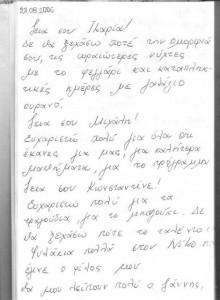 28.08.2006
Γεια σου Ικαρία!
Δε θα ξεχάσω ποτέ την ομορφιά
σου, τις ωραιώτερες νύχτες
με το φεγγάρι και καταπληκ-
τικές ημέρες με γαλάζιο
ουρανό.
Γεια σου Μιχάλη!
Ευχαριστώ πολύ για όλα ότι
έκανες για μας, για καλήτερα
μαθήματα, για το πρόγραμμα
Γεια σου Κωνσταντίνε!
Ευχαριστώ πολύ για τα
τραγούδια, για το μπουζούκι. Δε
θα ξεχάσω πότε το ταλέντο
Φυλάκια πολλά στον Νίκο
έγινε ο φίλος μου.
θα μου λείπουν πολύ ο Γιάννης,